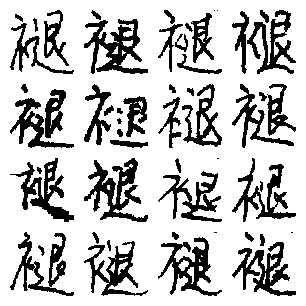 褪褪褪褪
褪褪褪褪
褪褪褪褪
褪褪褪褪